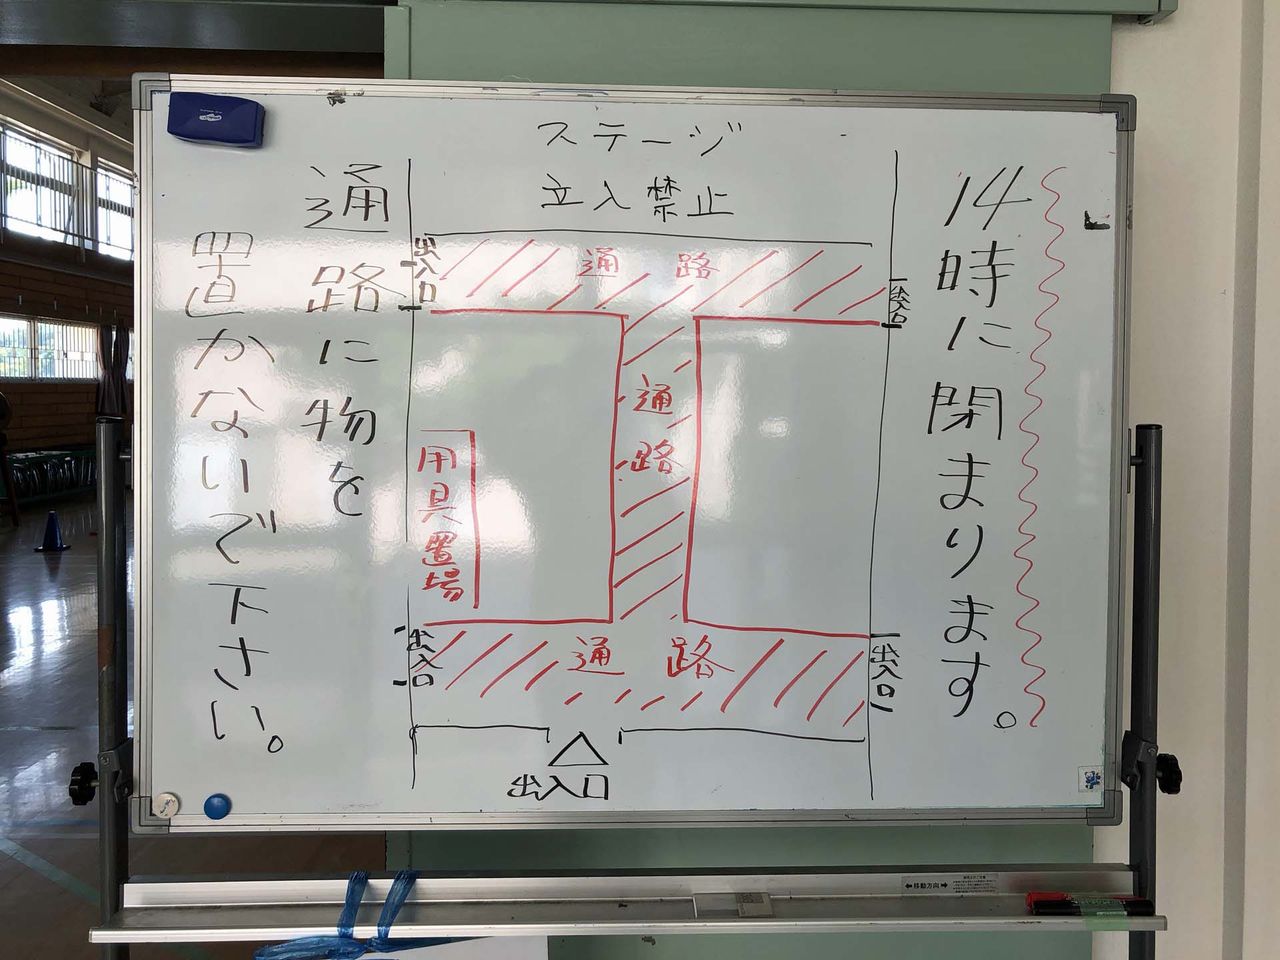 14時に閉まります。
通路に物を
置かないで下さい。
ステージ
立入禁止
出入口
通路
出入口
通路
用具置場
出入口
通路
出入口
出入口
←移動方向→